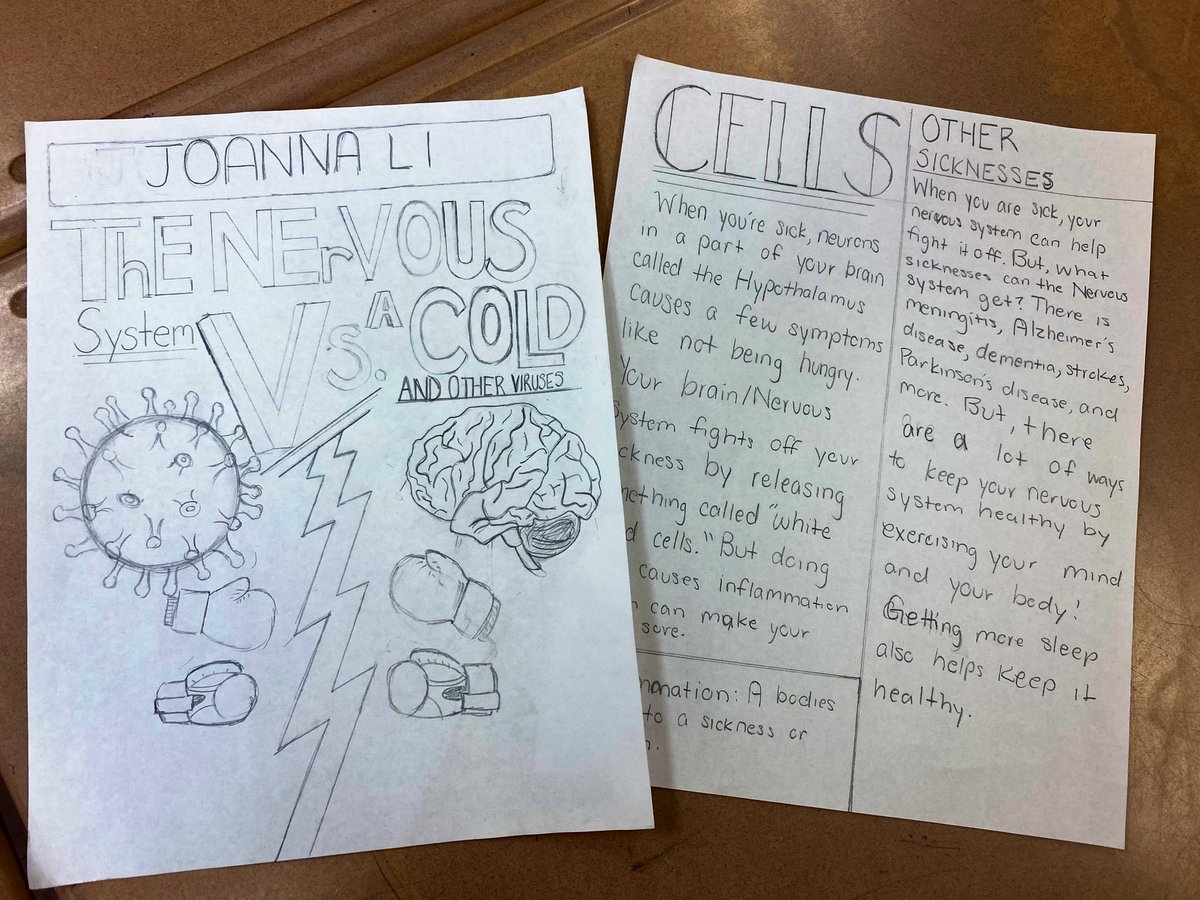 JOANNA LI
ThE NErVOUS
System Vs. A COLD
AND OTHER VIRUSES
CELLS
When you're sick, neurons
in a part of your brain
called the Hypothalamus
causes a few symptoms
like not being hungry.
Your brain/Nervous
system fights off your
ckness by releasing
mething called "white
d cells." But doing
causes inflammation
can make your
sore.
mation: A bodies
to a sickness or
OTHER
SICKNESSES
When you are sick, your
nervous system can help
fight it off. But, what
sicknesses can the Nervous
system get? There is
meningitis, Alzheimer's
disease, dementia, strokes,
Parkinson's disease, and
more. But, there
are a lot of ways
to keep your nervous
system healthy by
exercising your mind
and your body!
Getting more sleep
also helps keep it
healthy.